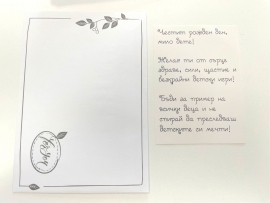 Честит рожден ден,
мило дете!
Желая ти от сърце
здраве, сили, щастие и
безкрайни детски игри!
Бъди за пример на
всички деца и не
спирай да преследваш
детските си мечти!